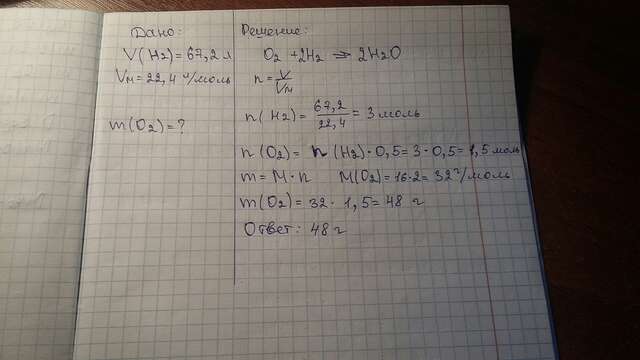 Дано:
V(H2)=67,2 л
Vм=22,4 л/моль
m(O2)=?
Решение:
O2 +2H2 => 2H2O
n=V/Vм
n(H2)=67,2/22,4=3 моль
n(O2)= n(H2)·0,5=3·0,5=1,5 моль
m=M·n M(O2)=16·2=32 г/моль
m(O2)=32·1,5=48 г
Ответ: 48 г